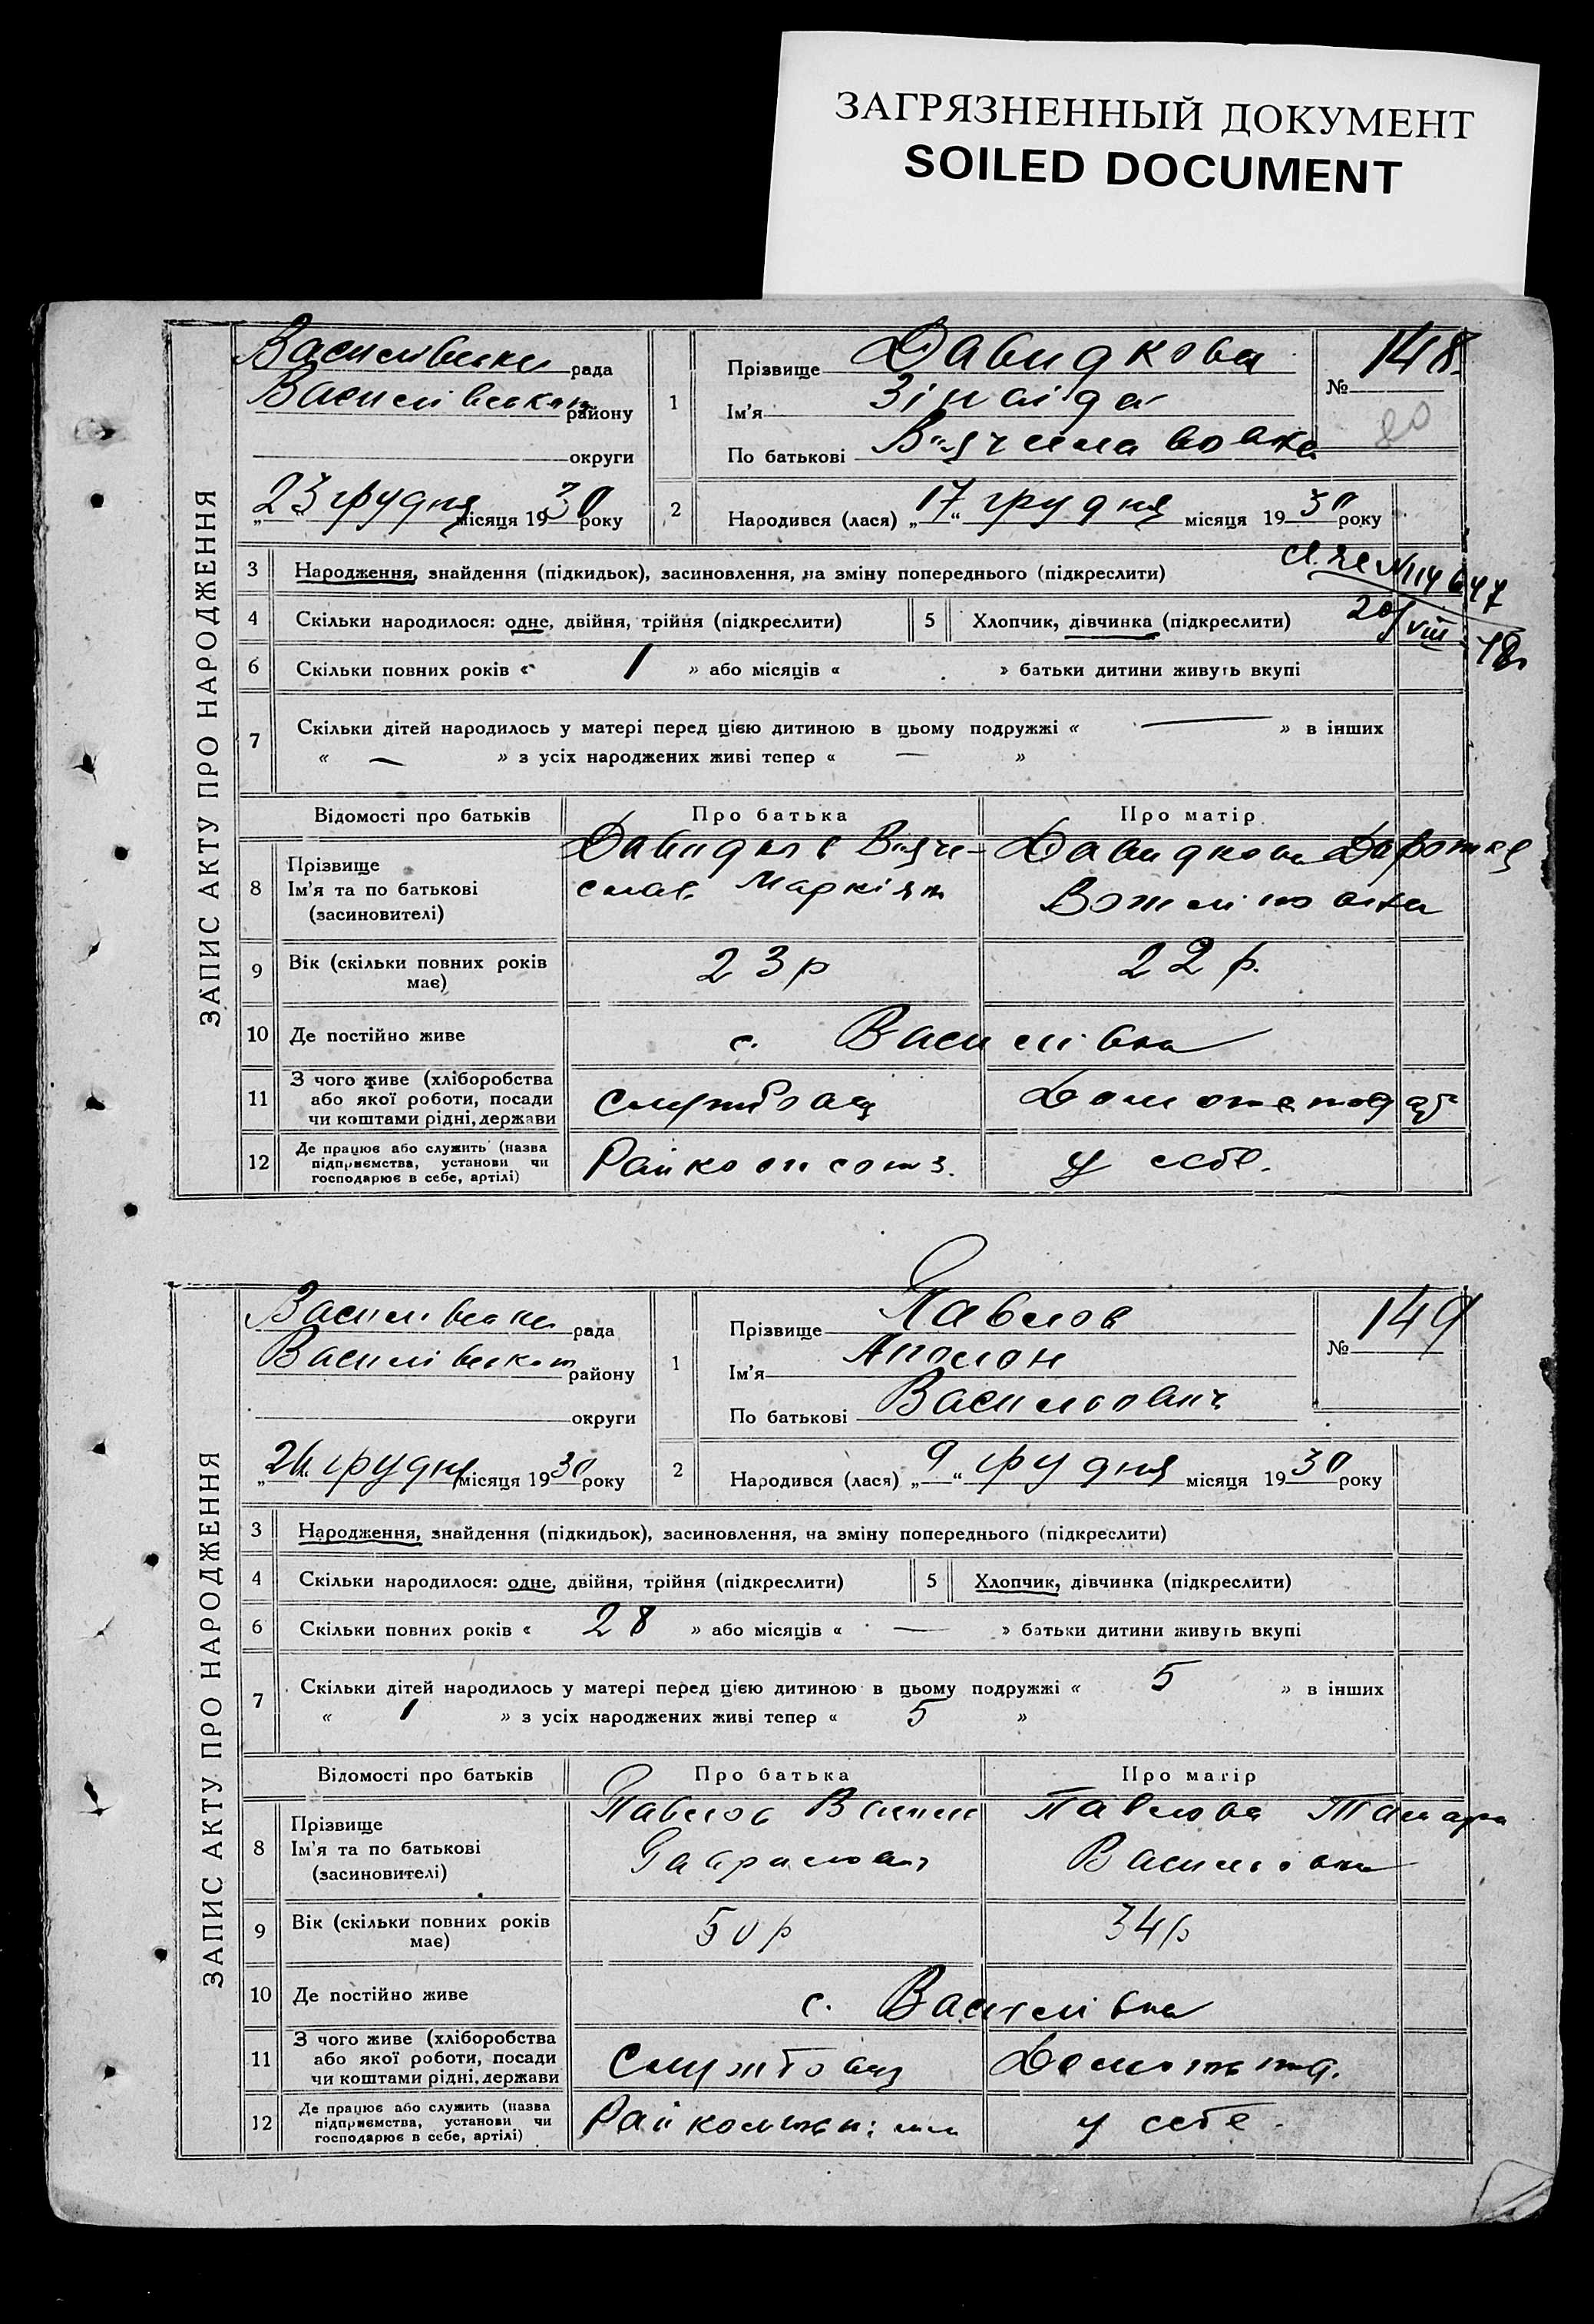 ЗАГРЯЗНЕННЫЙ ДОКУМЕНТ
SOILED DOCUMENT
ЗАПИС АКТУ ПРО НАРОДЖЕННЯ
рада
району
округи
„23“ грудня місяця 1930 року
1
Прізвище Давидкова
Ім'я Зінаїда
По батькові Вячеславовна
№ 148
80
2
Народився (лася) „17“ грудня місяця 1930 року
3 Народження, знайдення (підкидьок), засиновлення, на зміну попереднього (підкреслити)
4 Скільки народилося: одне, двійня, трійня (підкреслити)
5 Хлопчик, дівчинка (підкреслити)
6 Скільки повних років « 1 » або місяців « » батьки дитини живуть вкупі
7 Скільки дітей народилось у матері перед цією дитиною в цьому подружжі « — » в інших
« — » з усіх народжених живі тепер « — »
Відомості про батьків Про батька Про матір
8 Прізвище
Ім'я та по батькові
(засновителі)
Давидков Вяче-
слав
Давидкова
9 Вік (скільки повних років
має)
23 р 22 р.
10 Де постійно живе с. Василівка
11 З чого живе (хліборобства
або якої роботи, посади
чи коштами рідні, держави
12 Де працює або служить (назва
підприємства, установи чи
господарює в себе, артілі)
у себе.
ЗАПИС АКТУ ПРО НАРОДЖЕННЯ
рада
району
округи
місяця 1930 року
1
Прізвище Павлов
Ім'я Аполон
По батькові Васильович
№ 149
2
Народився (лася) „9“ грудня місяця 1930 року
3 Народження, знайдення (підкидьок), засиновлення, на зміну попереднього (підкреслити)
4 Скільки народилося: одне, двійня, трійня (підкреслити)
5 Хлопчик, дівчинка (підкреслити)
6 Скільки повних років « 28 » або місяців « — » батьки дитини живуть вкупі
7 Скільки дітей народилось у матері перед цією дитиною в цьому подружжі « 5 » в інших
« 1 » з усіх народжених живі тепер « 5 »
Відомості про батьків Про батька Про матір
8 Прізвище
Ім'я та по батькові
(засиновителі)
Павлов
Павлова Тамара
Василівна
9 Вік (скільки повних років
має)
50 р 34 р
10 Де постійно живе с. Василівка
11 З чого живе (хліборобства
або якої роботи, посади
чи коштами рідні, держави
12 Де працює або служить (назва
підприємства, установи чи
господарює в себе, артілі)
у себе.